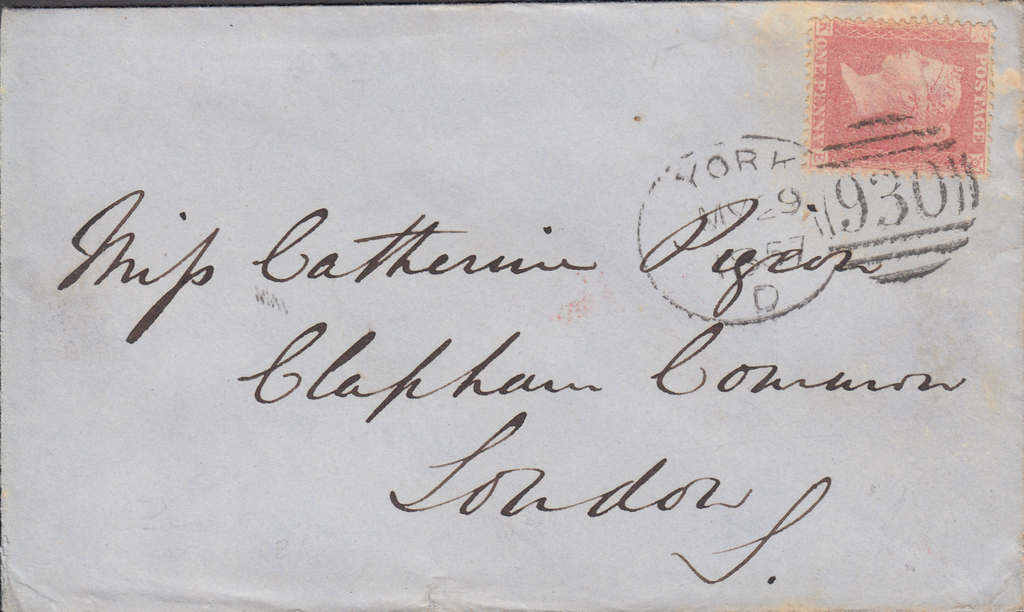 POSTAGE
ONE PENNY
YORK
930
29
57
D
Miss Catherine Pigeon
Clapham Common
London
S.